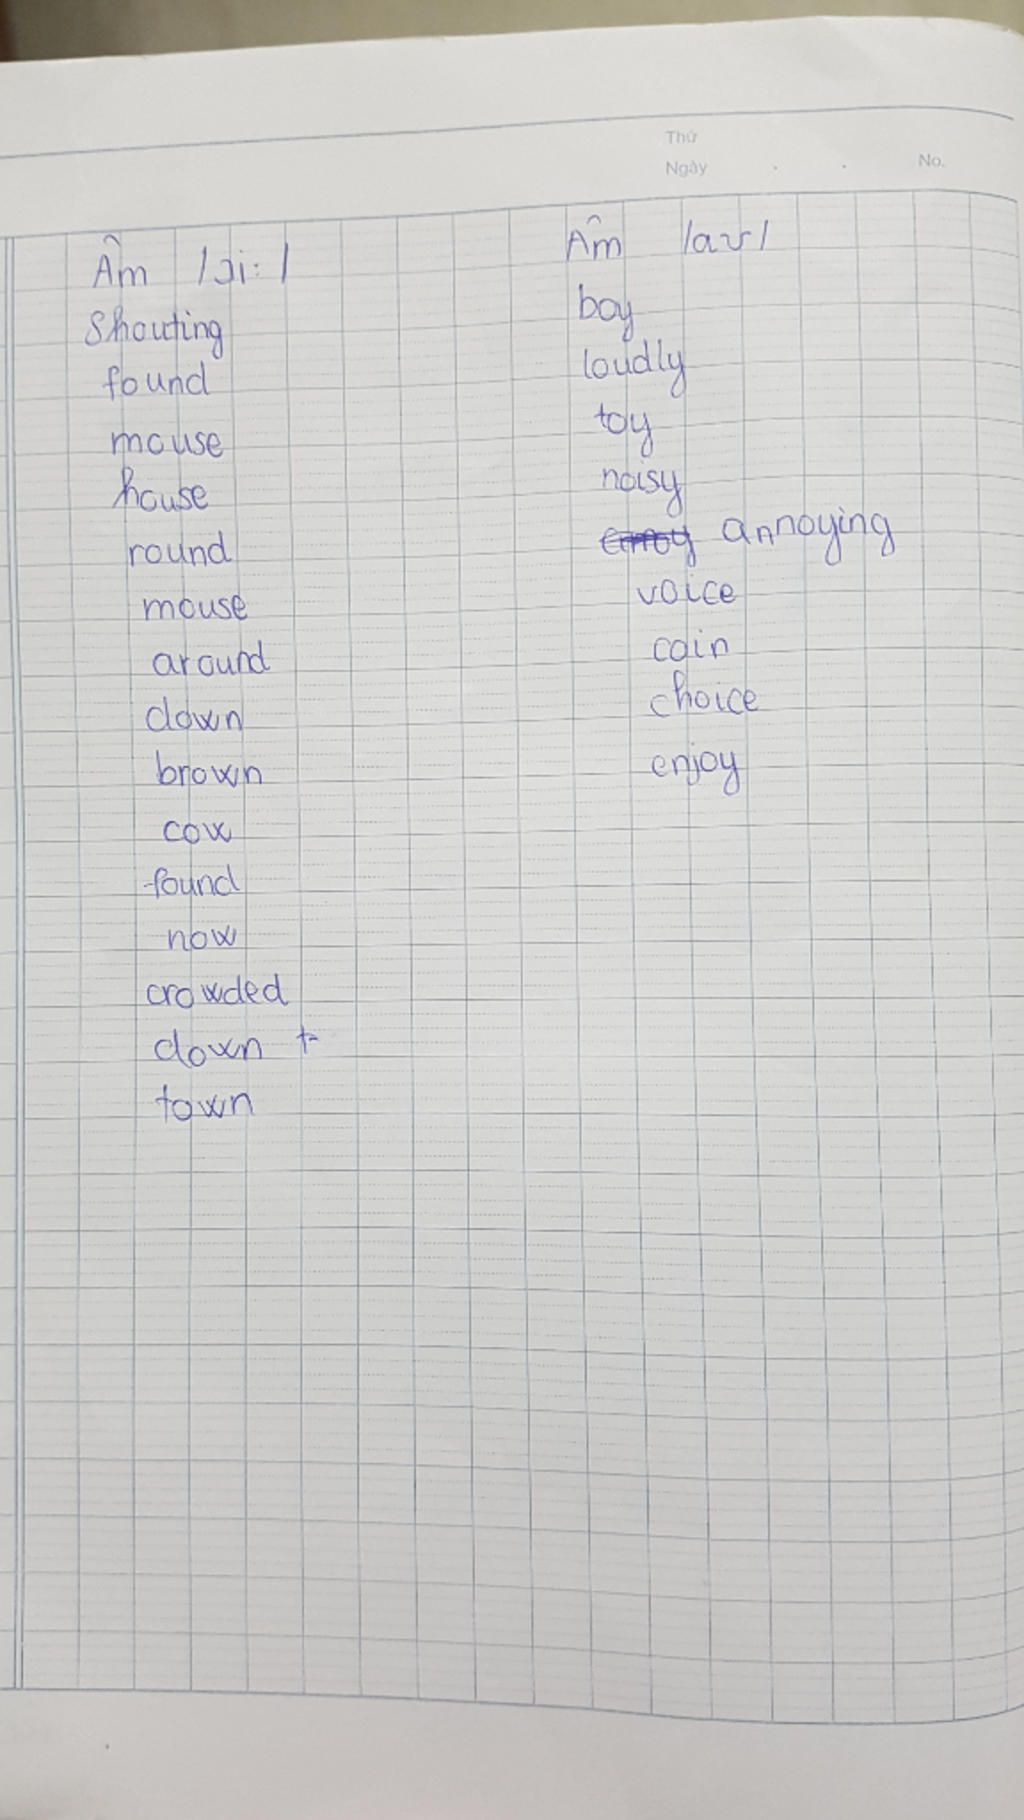 Thứ
Ngày . . No.
Âm /ɔi:/
Shouting
found
mouse
house
round
mouse
around
down
brown
cow
found
now
crowded
down t
town
Âm /aʊ/
boy
loudly
toy
noisy
annoying
voice
coin
choice
enjoy